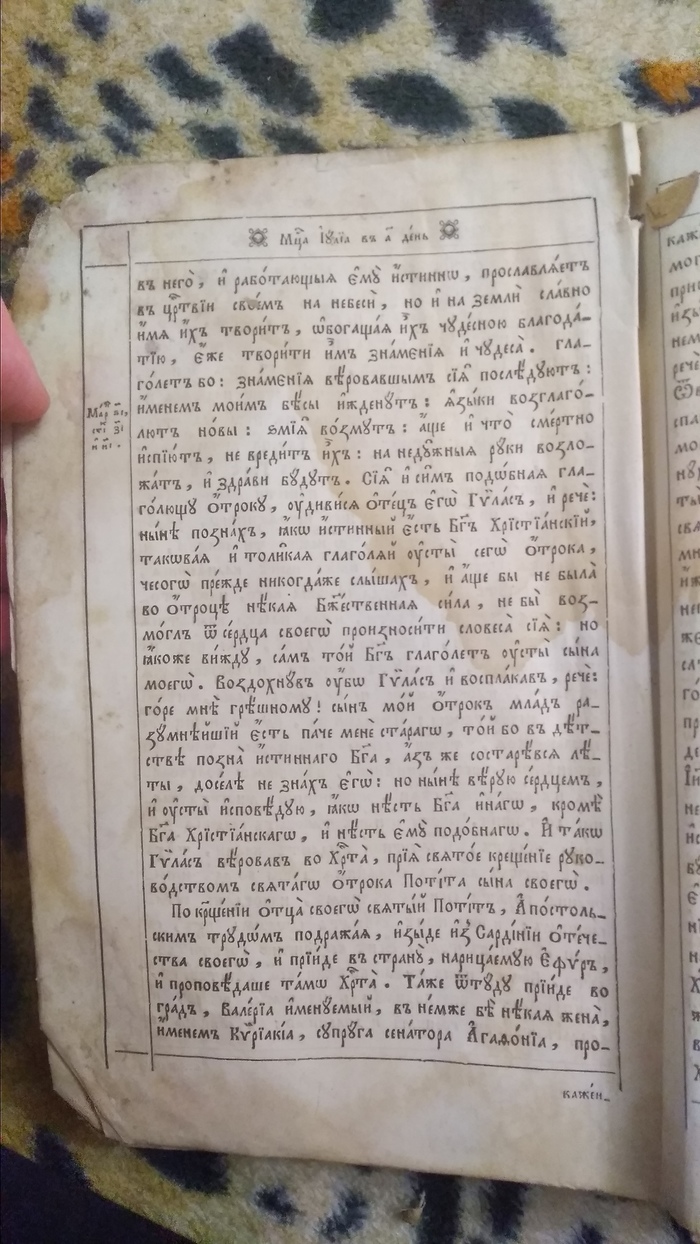 Мц҃а Іꙋ́лїа въ а҃ де́нь
въ него̀, и҆ рабо́тающыѧ є҆мꙋ̀ и҆́стиннѡ, прославлѧ́етъ
въ ца́рⷭ҇твїи свое́мъ на небесѝ, но и҆ на землѝ сла́вно
и҆́мѧ и҆́хъ твори́тъ, ѡ҆богаща́ѧ и҆̀хъ чꙋде́сною благода́-
тїю, є҆́же твори́ти и҆̀мъ зна́менїѧ и҆ чꙋдеса̀. Гла-
го́летъ бо: зна́менїѧ вѣ́ровавшымъ сїѧ̑ послѣ́дꙋютъ:
Мар. к҃с,
ст҃і з҃і
и҆ и҃і.
и҆́менемъ мои́мъ бѣ́сы и҆жденꙋ́тъ: ѧ҆зы́ки возглаго́-
лютъ но́вы: ѕмїѧ̑ во́змꙋтъ: а҆́ще и҆ что̀ сме́ртно
и҆спїю́тъ, не вреди́тъ и҆́хъ: на недꙋ́жныѧ рꙋ́ки возло-
жа́тъ, и҆ здра́ви бꙋ́дꙋтъ. Сїѧ̑ и҆ си̑мъ подѡ́бнаѧ гла-
го́лющꙋ ѻ҆́трокꙋ, ᲂу҆диви́сѧ ѻ҆те́цъ є҆гѡ̀ Гѷла́съ, и҆ речѐ:
ны́нѣ позна́хъ, ꙗ҆́кѡ и҆́стинный є҆́сть Бг҃ъ Хрїстїа́нскїй,
такѡва́ѧ и҆ толи̑каѧ глаго́лѧй ᲂу҆сты̀ сегѡ̀ ѻ҆́трока,
чесогѡ̀ пре́жде никогда́же слы́шахъ, и҆ а҆́ще бы не была̀
во ѻ҆́троцѣ нѣ́каѧ Бж҃е́ственнаѧ си́ла, не бы̀ воз-
мо́глъ ѿ се́рдца своегѡ̀ произноси́ти словеса̀ сїѧ̑: но
ꙗ҆́коже ви́ждꙋ, са́мъ то́й Бг҃ъ глаго́летъ ᲂу҆сты̀ сы́на
моегѡ̀. Воздохнꙋ́въ ᲂу҆́бѡ Гѷла́съ и҆ воспла́кавъ, речѐ:
го́ре мнѣ̀ грѣ́шномꙋ! сы́нъ мо́й ѻ҆́трокъ мла́дъ ра-
зꙋмнѣ́йшїй є҆́сть па́че менѐ ста́рагѡ, то́й бо въ дѣ́т-
ствѣ позна̀ и҆́стиннаго Бг҃а, а҆́зъ же состарѣ́всѧ лѣ́-
ты, досе́лѣ не зна́хъ є҆гѡ̀: но ны́нѣ вѣ́рꙋю се́рдцемъ,
и҆ ᲂу҆сты̀ и҆сповѣ́дꙋю, ꙗ҆́кѡ нѣ́сть Бг҃а и҆на́гѡ, кромѣ̀
Бг҃а Хрїстїа́нскагѡ, и҆ нѣ́сть є҆мꙋ̀ подо́бнагѡ. И҆ та́кѡ
Гѷла́съ вѣ́ровавъ во Хрⷭ҇та̀, прїѧ̀ свѧто́е креще́нїе рꙋко-
во́дствомъ свѧта́гѡ ѻ҆́трока Поті́та сы́на своегѡ̀.
По кр҃ще́нїи ѻ҆тца̀ своегѡ̀ свѧты́й Поті́тъ, А҆по́столь-
скимъ трꙋдѡ́мъ подража́ѧ, и҆зы́де и҆з̾ Сарді́нїи ѻ҆те́че-
ства своегѡ̀, и҆ прїи́де въ странꙋ̀, нарица́емꙋю Е҆фѵ́ръ,
и҆ проповѣ́даше та́мѡ Хрⷭ҇та̀. Та́же ѿтꙋ́дꙋ прїи́де во
гра́дъ, Вале́рїа и҆менꙋ́емый, въ не́мже бѣ̀ нѣ́каѧ жена̀,
и҆́менемъ Кѷрїакі́а, сꙋпрꙋ́га сена́тора А҆гаѳѡ́нїа, про-
каже́н-